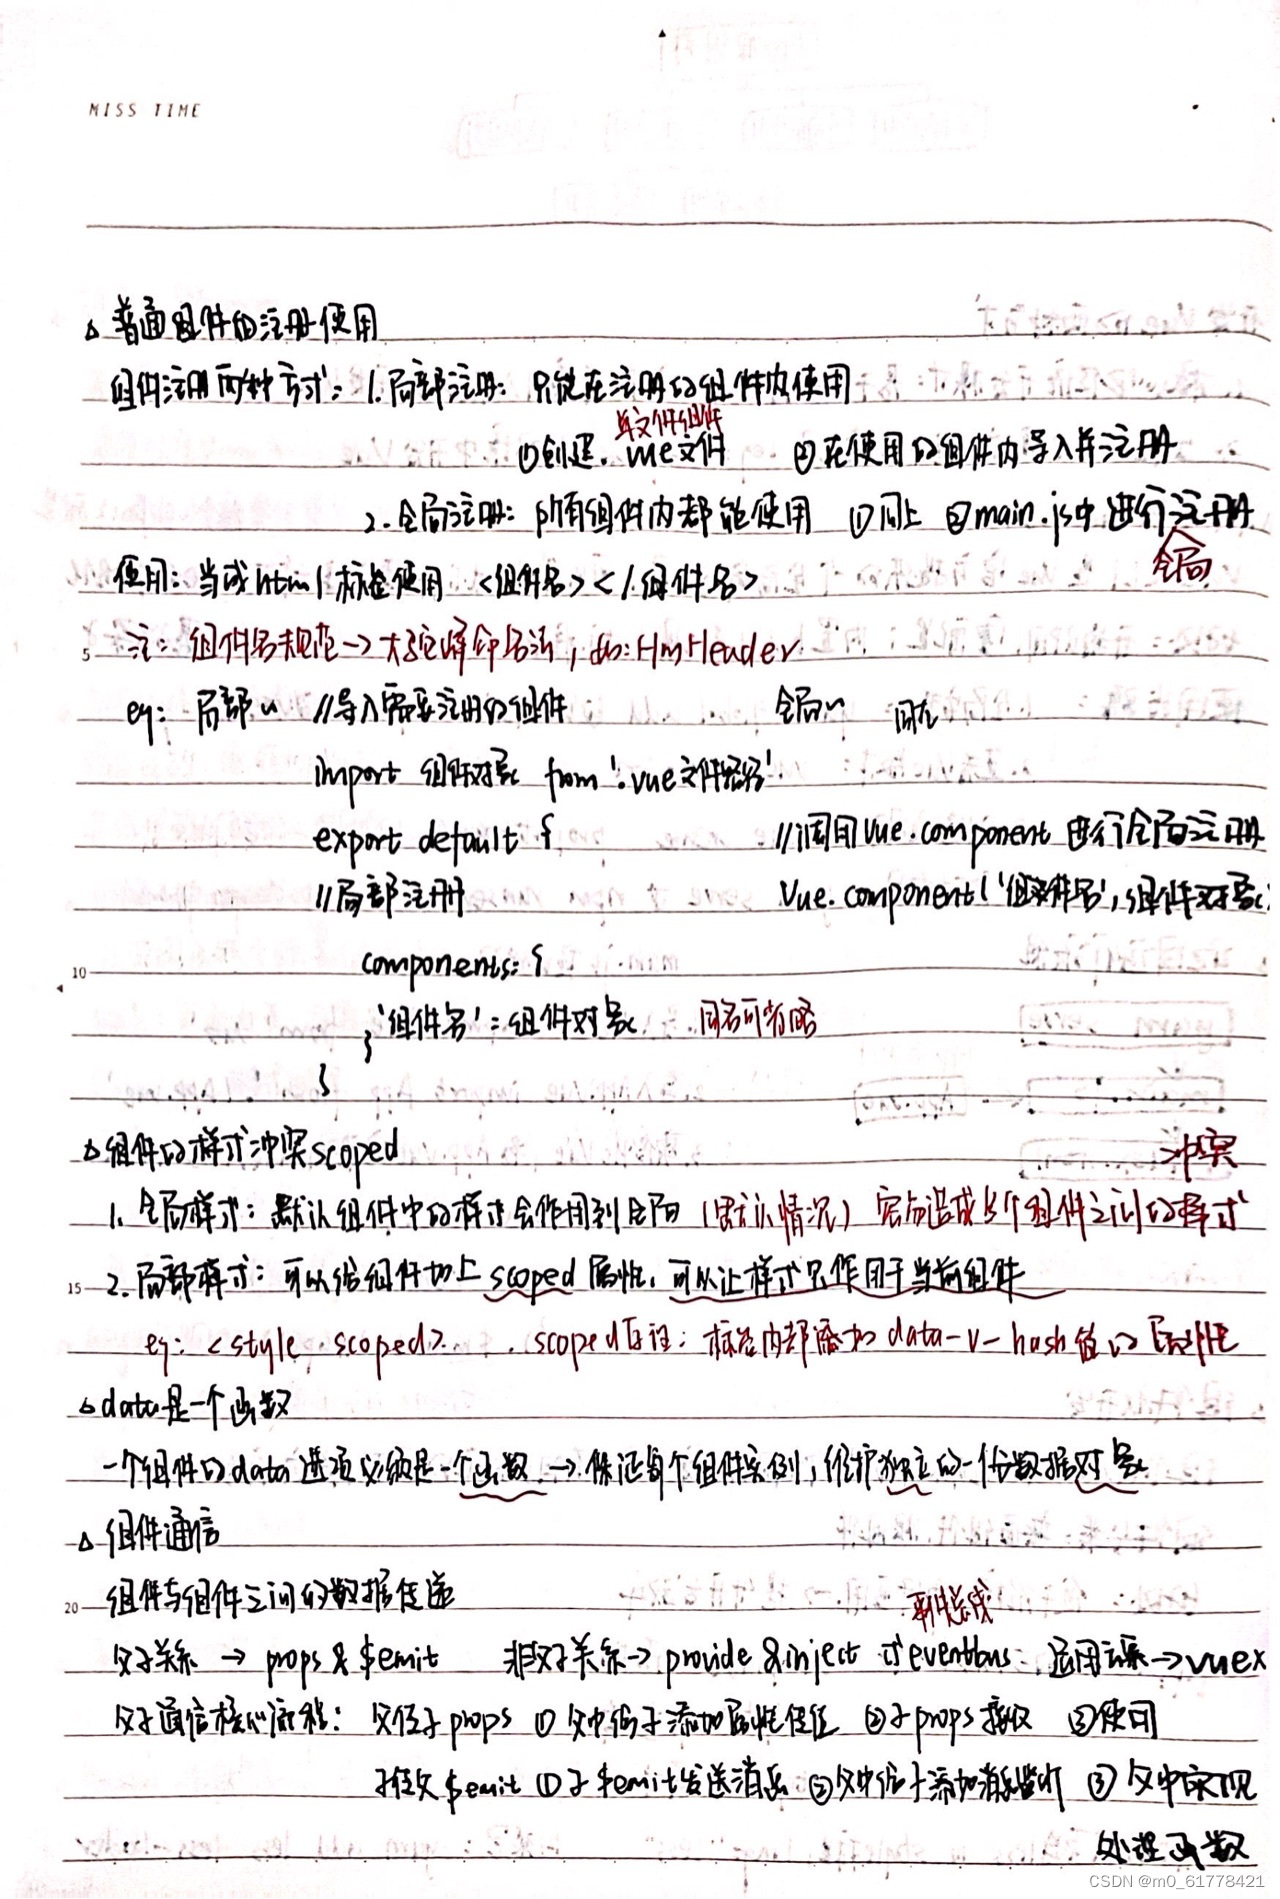 MISS TIME
△ 普通组件的注册使用
组件注册两种方式：1.局部注册：只能在注册的组件内使用
单文件组件
①创建.vue文件 ②在使用的组件内导入并注册
2.全局注册：所有组件内都能使用 ①同上 ②main.js中进行注册
全局
使用：当成html标签使用 <组件名></组件名>
5
注：组件名规范→大驼峰命名法，如：HmHeader
eg：局部 //导入需要注册的组件 全局 同左
import 组件对象 from '.vue文件路径'
export default { //调用Vue.component进行全局注册
//局部注册 Vue.component('组件名',组件对象)
10
components: {
'组件名'：组件对象 同名可省略
}
}
△ 组件的样式冲突scoped
冲突
1.全局样式：默认组件中的样式会作用到全局（默认情况）容易造成多个组件之间的样式
15
2.局部样式：可以给组件加上scoped属性，可以让样式只作用于当前组件
eg：<style scoped> scoped原理：标签内部添加data-v-hash值的属性
△ data是一个函数
一个组件的data选项必须是一个函数→保证每个组件实例，维护独立的一份数据对象
△ 组件通信
组件与组件之间的数据传递
20
事件总线
父子关系 → props & $emit 非父子关系→provide & inject 或eventbus 通用方案→vuex
父子通信核心流程：父传子props ①父中给子添加属性传值 ②子props接收 ③使用
子传父$emit ①子$emit发送消息 ②父中给子添加消息监听 ③父中实现
处理函数
CSDN @m0_61778421